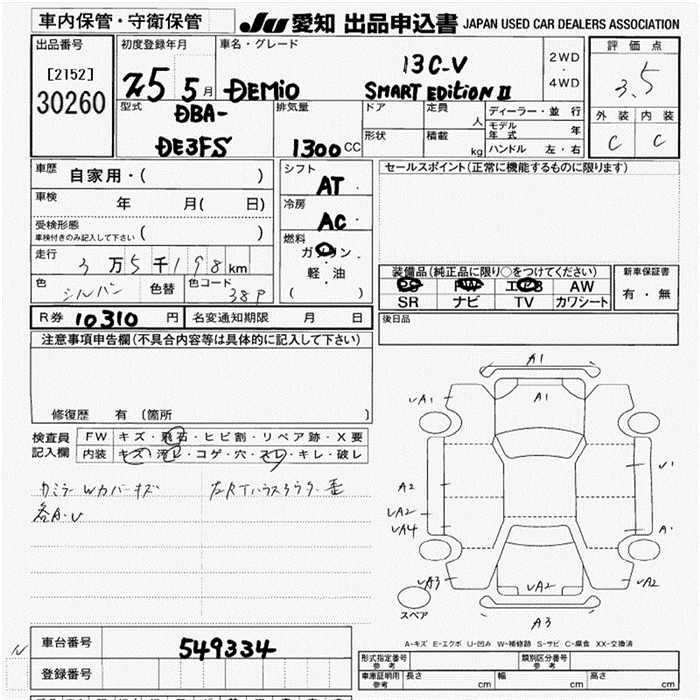 車内保管・守衛保管 JU 愛知 出品申込書 JAPAN USED CAR DEALERS ASSOCIATION
出品番号 初度登録年月 車名・グレード 2WD ・ 4WD 評価点
[2152] 30260 25 5月 DEMiO 13C-V SMART EDitiON II 3.5
型式 DBA-DE3FS 排気量 1300CC ドア 定員 人 ディーラー・並行 外装 内装
形状 積載 kg モデル年式 年 C C
ハンドル 左・右
車歴 自家用・( ) シフト AT セールスポイント(正常に機能するものに限ります)
車検 年 月( 日) 冷房 AC
受検形態 車検付きのみ記入して下さい ( ) 燃料 ガソリン 軽・油 ( )
走行 3万5千198km
色 シルバー 色替 色コード 38P
装備品(純正品に限り○をつけてください) 新車保証書
PS PW エアB AW 有・無
SR ナビ TV カワシート
R券 10310円 名変通知期限 月 日 後日品
注意事項申告欄(不具合内容等は具体的に記入して下さい)
修復歴 有 〔箇所 〕
検査員記入欄 FW キズ・飛石・ヒビ割・リペア跡・X要
内装 キズ・汚レ・コゲ・穴・スレ・キレ・破レ
各A.U
A1
A1
A1
A2
A2
A4
A3
A2
A2
A3
スペア
A-キズ E-エクボ U-凹み W-補修跡 S-サビ C-腐食 XX-交換済
車台番号 549334
登録番号
形式指定番号 参考 類別区分番号 参考
車庫証明用 参考 長さ cm 幅 cm 高さ cm